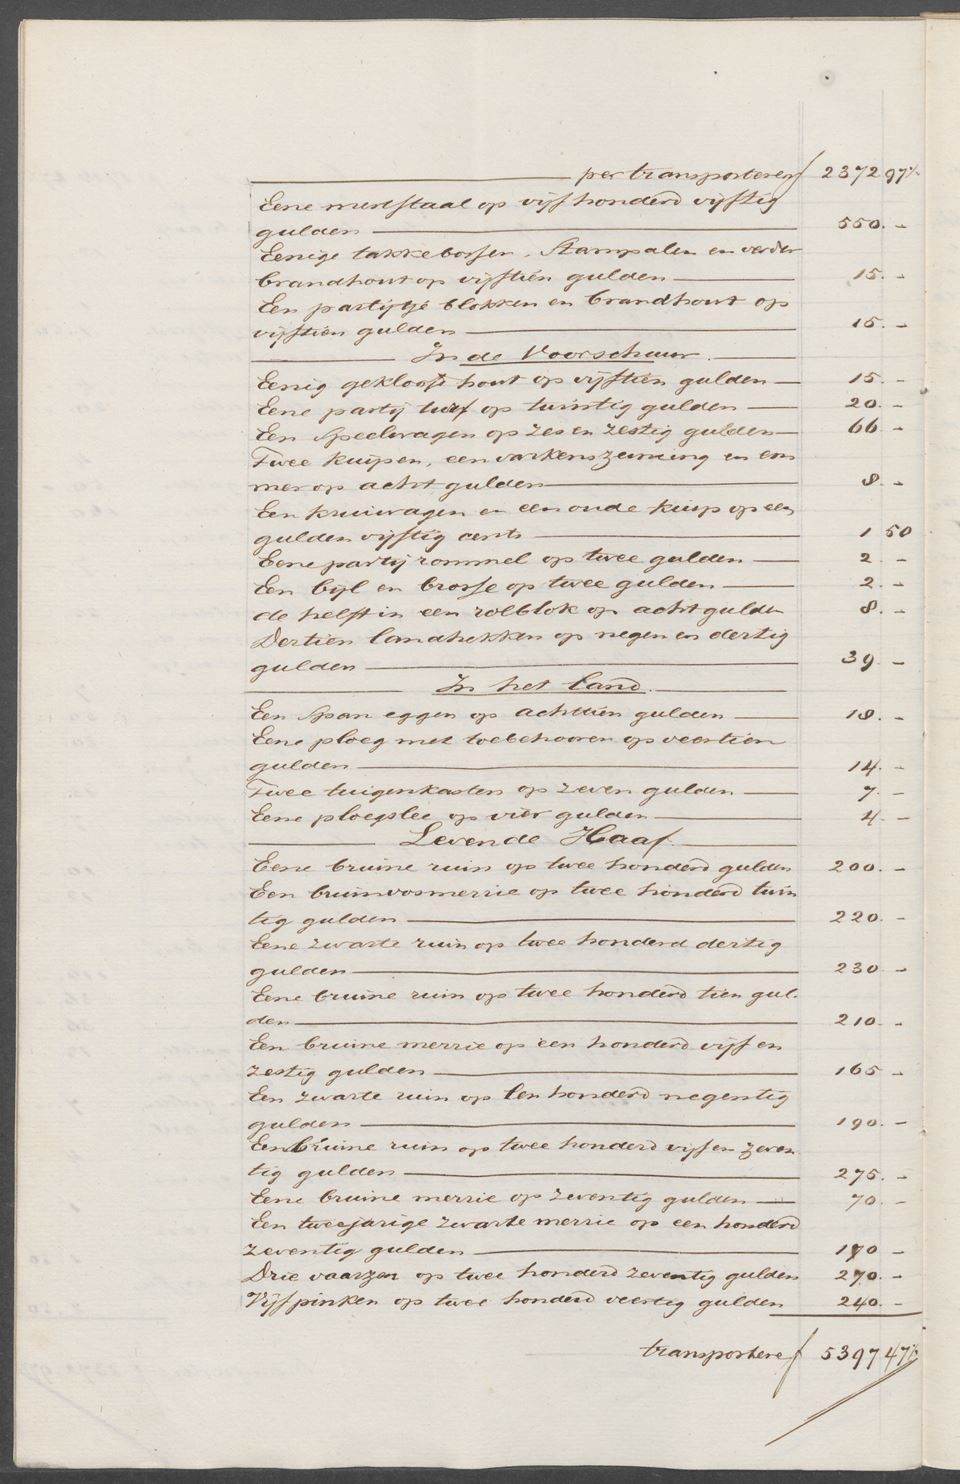 per transportere ƒ 2372 97½
Eene mestfaal op vijf honderd vijftig
gulden 550. -
Eenige takkebossen, Stampalen en verder
brandhout op vijftien gulden 15. -
Een partijtje blokken en brandhout op
vijftien gulden 15. -
In de Voorschuur.
Eenig gekloofd hout op vijftien gulden 15. -
Eene partij turf op twintig gulden 20. -
Een Speelwagen op zes en zestig gulden 66 -
Twee kuipen, een varkenszeuning en em
mer op acht gulden 8. -
Een kruiwagen en een oude kuip op een
gulden vijftig cents 1 50
Eene partij rommel op twee gulden 2. -
Een bijl en brosse op twee gulden 2. -
de helft in een rolblok op acht gulden 8. -
Dertien landhekken op negen en dertig
gulden 39 -
In het land.
Een Span eggen op achttien gulden 18. -
Eene ploeg met toebehooren op veertien
gulden 14. -
Twee tuigenkasten op zeven gulden 7. -
Eene ploegslee op vier gulden 4. -
Levende Haaf.
Eene bruine ruin op twee honderd gulden 200. -
Een bruinvosmerrie op twee honderd twin
tig gulden 220. -
Eene zwarte ruin op twee honderd dertig
gulden 230. -
Eene bruine ruin op twee honderd tien gul-
den 210. -
Een bruine merrie op een honderd vijf en
zestig gulden 165 -
Een zwarte ruin op Een honderd negentig
gulden 190. -
Een bruine ruin op twee honderd vijf en zeven
tig gulden 275. -
Eene bruine merrie op zeventig gulden 70. -
Een tweejarige zwarte merrie op een honderd
zeventig gulden 170 -
Drie vaarzen op twee honderd zeventig gulden 270. -
Vijf pinken op twee honderd veertig gulden 240. -
transportere ƒ 5397 47½